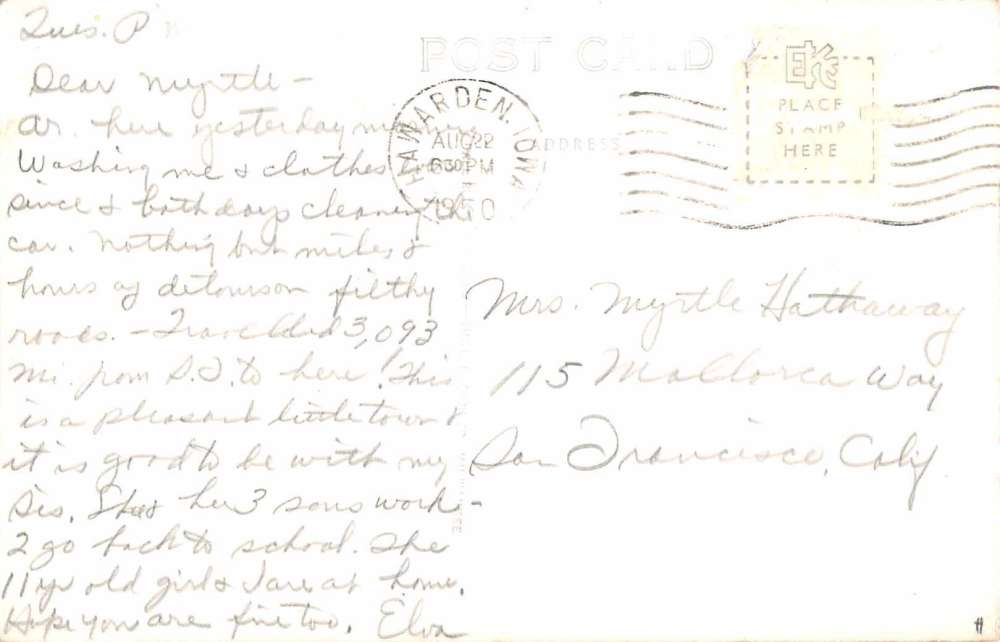 Tues. P
Dear Myrtle —
Ar. here yesterday
Washing me & clothes
since & both days cleaning the
car. Nothing but miles &
hours of detours on filthy
roads. — Travelled 3,093
mi. from S.F. to here! This
is a pleasant little town &
it is good to be with my
sis. She & her 3 sons work –
2 go back to school. The
11 yr old girl & I are at home.
Hope you are fine too. Elva
POST CARD
ADDRESS
HAWARDEN, IOWA
AUG 22
6 30 PM
1950
EKC
PLACE
STAMP
HERE
Mrs. Myrtle Hathaway
115 Mallorca Way
San Francisco, Calif